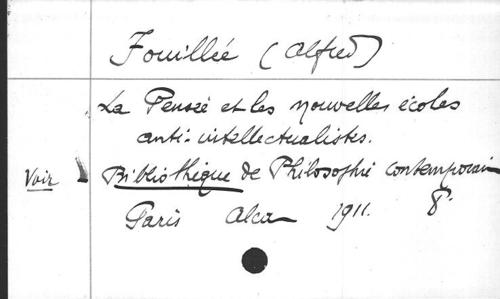 Fouillée (Alfred)
La Pensée et les nouvelles écoles
anti-intellectualistes.
Voir Bibliothèque de Philosophie contemporain
Paris Alcan 1911. 8°